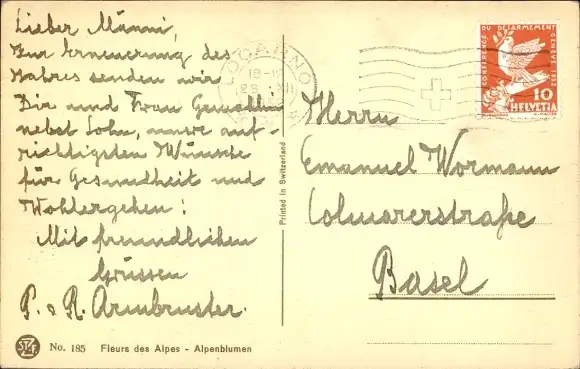 Lieber Männi,
Zur Erneuerung des
Jahres senden wir
Dir und Frau Gemahlin
nebst Sohn, unsre auf-
richtigsten Wünsche
für Gesundheit und
Wohlergehen!
Mit freundlichen
Grüssen
P. & R. Armbruster.
No. 185 Fleurs des Alpes - Alpenblumen
Printed in Switzerland
LOCARNO
CONFERENCE DU DESARMEMENT GENEVE 1932
10
HELVETIA
Herrn
Emanuel Wormann
Colmarerstraße
Basel